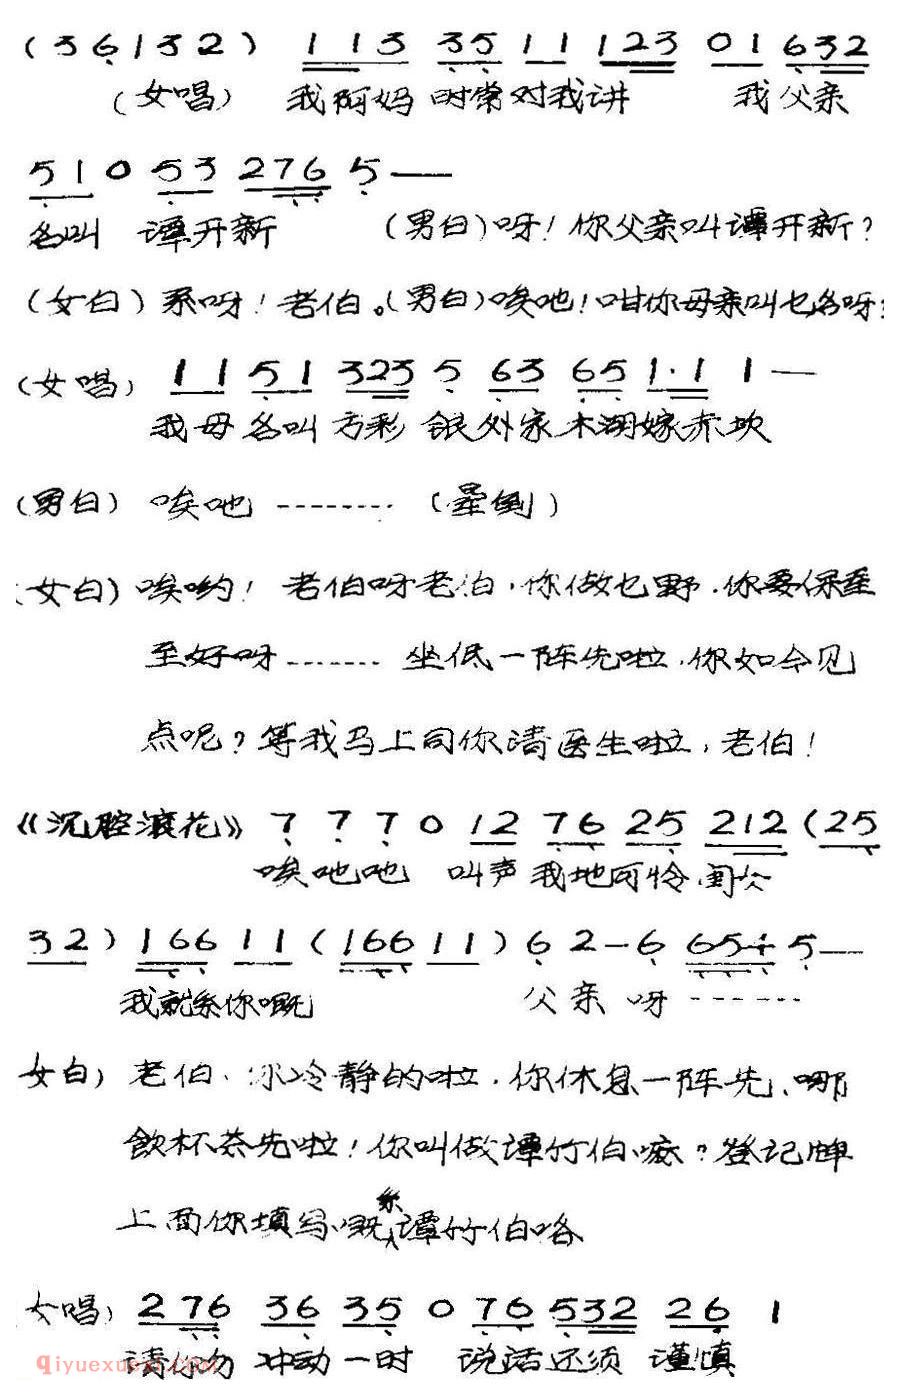 (36132) 113 35 11 123 01 632
(女唱) 我阿妈 时常对我讲 我父亲
510 53 276 5 —
名叫 谭开新 (男白)呀!你父亲叫谭开新?
(女白)系呀!老伯。(男白)唉吔!咁你母亲叫乜名呀
(女唱) 11 51 323 5 63 65 1·1 1 —
我母名叫方彩银外家木湖嫁赤坎
(男白) 唉吔 -------- (晕倒)
(女白)唉哟! 老伯呀老伯,你做乜野.你要保重
至好呀 ------- 坐低一阵先啦,你如今见
点呢?等我马上同你请医生啦,老伯!
《沉腔滚花》 7 7 7 0 12 76 25 212 (25
唉吔吔 叫声我地可怜
32) 166 11 (166 11) 6 2 — 6 654 5 —
我就系你嘅 父亲呀 -------
女白) 老伯、冷静的啦.你休息一阵先、嗱
飲杯茶先啦!你叫做谭竹伯嘛?登记牌
上面你填写嘅系谭竹伯咯
女唱) 276 36 35 0 76 532 26 1
请你勿 冲动一时 说话还须 谨慎
qiyuexuexi.com